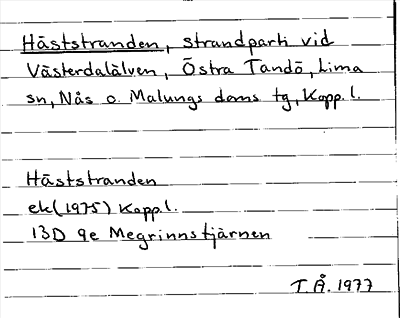 Häststranden, strandparti vid
Västerdalälven, Östra Tandö, Lima
sn, Nås o. Malungs doms tg, Kopp. l.
Häststranden
ek (1975) Kopp. l.
13D 9e Megrinnstjärnen
T.Å. 1977